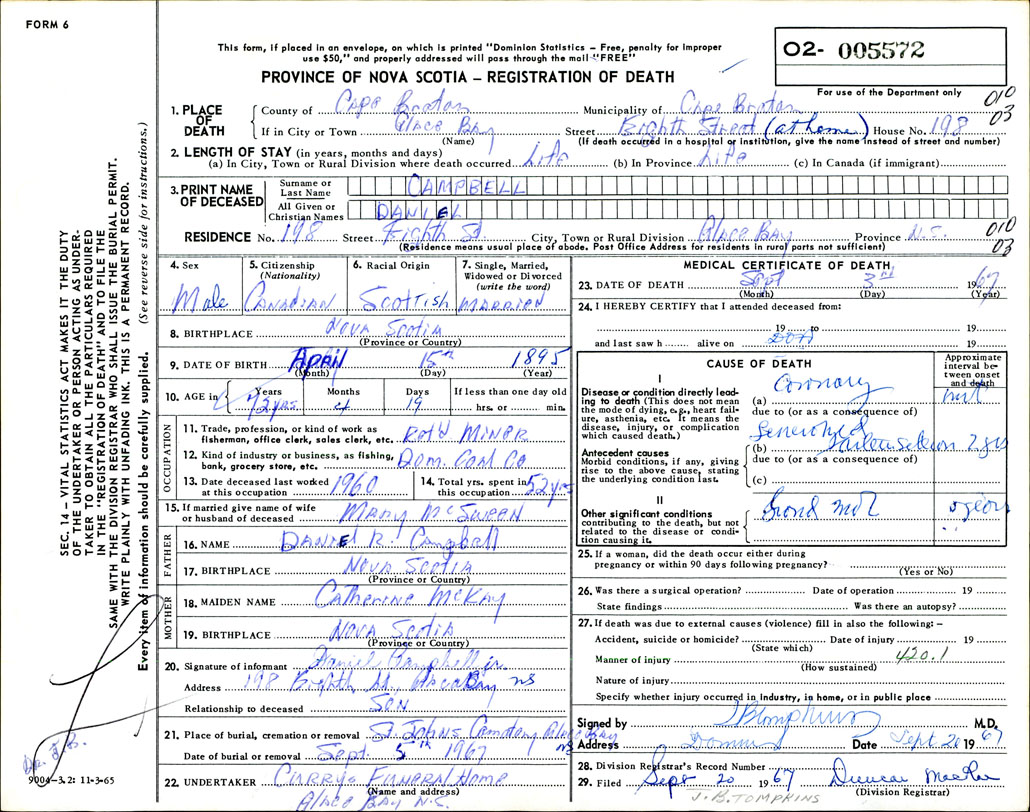 FORM 6
This form, if placed in an envelope, on which is printed "Dominion Statistics – Free, penalty for improper
use $50," and properly addressed will pass through the mail "FREE"
O2- 005572
For use of the Department only
PROVINCE OF NOVA SCOTIA – REGISTRATION OF DEATH
010
03
1. PLACE OF DEATH { County of Cape Breton Municipality of Cape Breton
If in City or Town Glace Bay Street Eighth Street (at home) House No. 198
(Name) (If death occurred in a hospital or institution, give the name instead of street and number)
2. LENGTH OF STAY (in years, months and days)
(a) In City, Town or Rural Division where death occurred Life (b) In Province Life (c) In Canada (if immigrant)
3. PRINT NAME OF DECEASED { Surname or Last Name CAMPBELL
All Given or Christian Names DANIEL
RESIDENCE No. 198 Street Eighth St City, Town or Rural Division Glace Bay Province N.S.
010
03
(Residence means usual place of abode. Post Office Address for residents in rural parts not sufficient)
4. Sex Male
5. Citizenship (Nationality) CANADIAN
6. Racial Origin Scottish
7. Single, Married, Widowed or Divorced (write the word) MARRIED
8. BIRTHPLACE NOVA SCOTIA
(Province or Country)
9. DATE OF BIRTH April 15th 1895
(Month) (Day) (Year)
10. AGE in { Years Months Days If less than one day old
72 yrs 4 19 hrs. or min.
OCCUPATION
11. Trade, profession, or kind of work as fisherman, office clerk, sales clerk, etc. Ret'd MINER
12. Kind of industry or business, as fishing, bank, grocery store, etc. Dom. Coal Co
13. Date deceased last worked at this occupation 1960
14. Total yrs. spent in this occupation 52 yrs
15. If married give name of wife or husband of deceased MARY McSWEEN
FATHER
16. NAME DANIEL R. Campbell
17. BIRTHPLACE NOVA SCOTIA
(Province or Country)
MOTHER
18. MAIDEN NAME Catherine McKay
19. BIRTHPLACE NOVA SCOTIA
(Province or Country)
20. Signature of informant Daniel Campbell jr.
Address 198 Eighth St, Glace Bay NS
Relationship to deceased SON
21. Place of burial, cremation or removal St Johns Cemetery Glace Bay
NS
Date of burial or removal Sept. 5th 1967
22. UNDERTAKER CURRYS FUNERAL Home
(Name and address)
GLACE BAY N.S.
MEDICAL CERTIFICATE OF DEATH
23. DATE OF DEATH Sept 3rd 1967
(Month) (Day) (Year)
24. I HEREBY CERTIFY that I attended deceased from:
19 to 19
and last saw h alive on 19
CAUSE OF DEATH
Approximate interval between onset and death
I
Disease or condition directly leading to death (This does not mean the mode of dying, e.g., heart failure, asthenia, etc. It means the disease, injury, or complication which caused death.)
(a) Coronary
due to (or as a consequence of)
Antecedent causes
Morbid conditions, if any, giving rise to the above cause, stating the underlying condition last.
(b) Generalized 2 yrs
due to (or as a consequence of)
(c)
II
Other significant conditions
contributing to the death, but not related to the disease or condition causing it.
25. If a woman, did the death occur either during
pregnancy or within 90 days following pregnancy?
(Yes or No)
26. Was there a surgical operation? Date of operation 19
State findings Was there an autopsy?
27. If death was due to external causes (violence) fill in also the following: –
Accident, suicide or homicide? Date of injury 19
(State which)
420.1
Manner of injury
(How sustained)
Nature of injury
Specify whether injury occurred in industry, in home, or in public place
Signed by J B Tompkins M.D.
Address Date Sept 20 1967
28. Division Registrar's Record Number
29. Filed Sept 20 1967 Duncan MacRae
(Division Registrar)
J.B. TOMPKINS
SEC. 14 – VITAL STATISTICS ACT MAKES IT THE DUTY
OF THE UNDERTAKER OR PERSON ACTING AS UNDER-
TAKER TO OBTAIN ALL THE PARTICULARS REQUIRED
IN THE "REGISTRATION OF DEATH" AND TO FILE THE
SAME WITH THE DIVISION REGISTRAR WHO SHALL ISSUE THE BURIAL PERMIT.
WRITE PLAINLY WITH UNFADING INK. THIS IS A PERMANENT RECORD.
Every item of information should be carefully supplied. (See reverse side for instructions.)
9004-3.2: 11-3-65